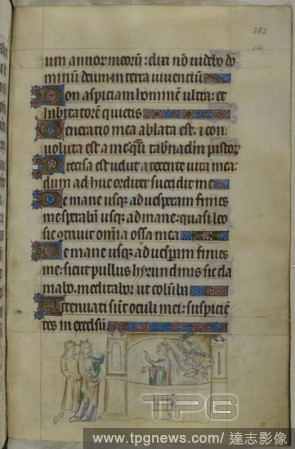 282
um annor meorū: dixi nō videbo do
minū deum in terra vivenciū
Non aspiciam hominē ultra: et
habitatorē quietis
Generatio mea ablata est: i con
voluta est a me: q̄si tab'nac'lm pastor
Precisa est velut a texente vita mea:
dum adhuc ordirer succidit me
De mane usq; ad vesperam finies
me: sperabā usq; ad mane: quasi leo
sic 9trivit omīa ossa mea
De mane usq; ad vesperam finies
me: sicut pullus hyrundinis sic cla
mabo: meditabor ut colūba
Attenuati sūt oculi mei: suspicien
tes in excelsū
TPG
www.tpgnews.com/達志影像